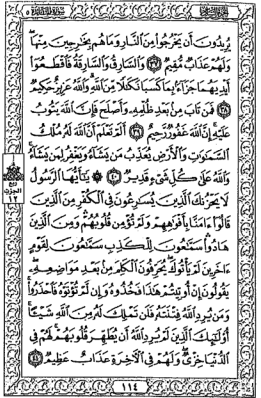 الجزء السادس سورة المائدة ٥
يُرِيدُونَ أَن يَخْرُجُوا۟ مِنَ ٱلنَّارِ وَمَا هُم بِخَٰرِجِينَ مِنْهَا ۖ
وَلَهُمْ عَذَابٌ مُّقِيمٌ ٣٧ وَٱلسَّارِقُ وَٱلسَّارِقَةُ فَٱقْطَعُوٓا۟
أَيْدِيَهُمَا جَزَآءًۢ بِمَا كَسَبَا نَكَٰلًا مِّنَ ٱللَّهِ ۗ وَٱللَّهُ عَزِيزٌ حَكِيمٌ
٣٨ فَمَن تَابَ مِنۢ بَعْدِ ظُلْمِهِۦ وَأَصْلَحَ فَإِنَّ ٱللَّهَ يَتُوبُ
عَلَيْهِ ۗ إِنَّ ٱللَّهَ غَفُورٌ رَّحِيمٌ ٣٩ أَلَمْ تَعْلَمْ أَنَّ ٱللَّهَ لَهُۥ مُلْكُ
ٱلسَّمَٰوَٰتِ وَٱلْأَرْضِ يُعَذِّبُ مَن يَشَآءُ وَيَغْفِرُ لِمَن يَشَآءُ ۗ
وَٱللَّهُ عَلَىٰ كُلِّ شَىْءٍ قَدِيرٌ ٤٠ يَٰٓأَيُّهَا ٱلرَّسُولُ
لَا يَحْزُنكَ ٱلَّذِينَ يُسَٰرِعُونَ فِى ٱلْكُفْرِ مِنَ ٱلَّذِينَ
قَالُوٓا۟ ءَامَنَّا بِأَفْوَٰهِهِمْ وَلَمْ تُؤْمِن قُلُوبُهُمْ ۛ وَمِنَ ٱلَّذِينَ
هَادُوا۟ ۛ سَمَّٰعُونَ لِلْكَذِبِ سَمَّٰعُونَ لِقَوْمٍ
ءَاخَرِينَ لَمْ يَأْتُوكَ ۖ يُحَرِّفُونَ ٱلْكَلِمَ مِنۢ بَعْدِ مَوَاضِعِهِۦ ۖ
يَقُولُونَ إِنْ أُوتِيتُمْ هَٰذَا فَخُذُوهُ وَإِن لَّمْ تُؤْتَوْهُ فَٱحْذَرُوا۟ ۚ
وَمَن يُرِدِ ٱللَّهُ فِتْنَتَهُۥ فَلَن تَمْلِكَ لَهُۥ مِنَ ٱللَّهِ شَيْـًٔا ۚ
أُو۟لَٰٓئِكَ ٱلَّذِينَ لَمْ يُرِدِ ٱللَّهُ أَن يُطَهِّرَ قُلُوبَهُمْ ۚ لَهُمْ فِى
ٱلدُّنْيَا خِزْىٌ ۖ وَلَهُمْ فِى ٱلْءَاخِرَةِ عَذَابٌ عَظِيمٌ ٤١
ربع
الحزب
١٢
١١٤